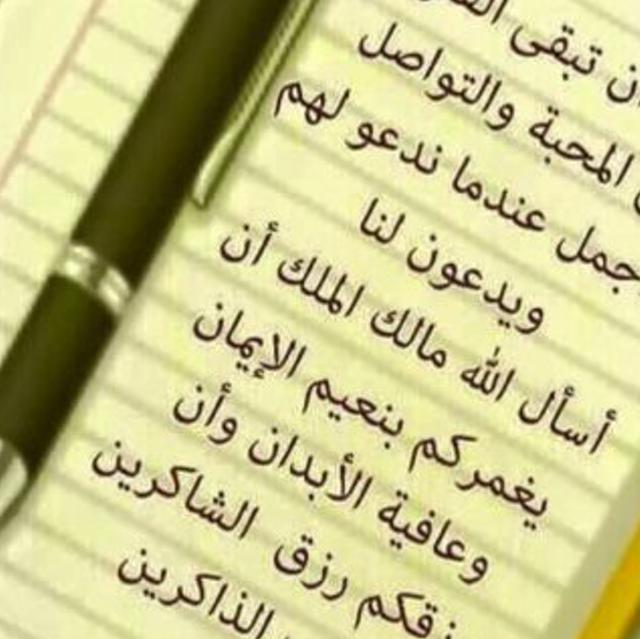 ن تبقى
المحبة والتواصل
جمل عندما ندعو لهم
ويدعون لنا
أسأل الله مالك الملك أن
يغمركم بنعيم الإيمان
وعافية الأبدان وأن
زقكم رزق الشاكرين
الذاكرين